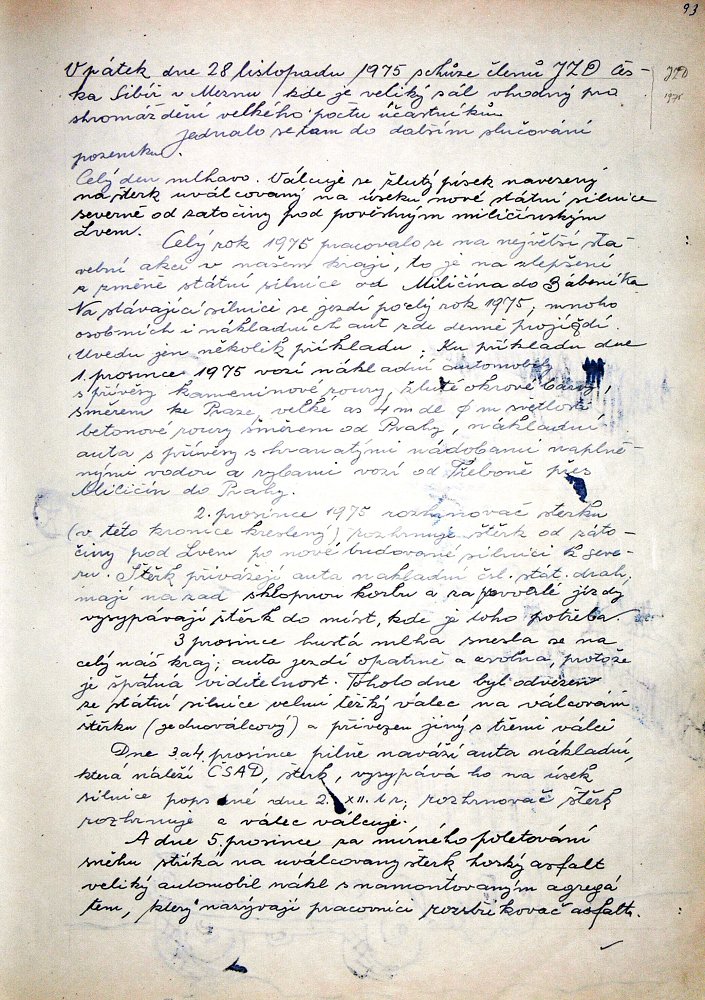 93
V pátek dne 28 listopadu 1975 schůze členů JZD Čes-
JZD
1975
ka Sibíř v Meznu kde je veliký sál vhodný pro
shromáždění velkého počtu účastníků.
Jednalo se tam do dalsím slučování
pozemků.
Celý den mlhavo. Válcuje se žlutý písek navezený
na štěrk uválcovaný na úseku nové státní silnice
severně od zatočiny pod pověstným miličínským
Lvem.
Celý rok 1975 pracovalo se na největší sta-
vební akci v našem kraji, to je na zlepšení
a změně státní silnice od Miličína do
Na stávající silnici se jezdí po celý rok 1975, mnoho
osobních i nákladních aut zde denně projíždí.
Uvedu jen několik příkladu. Ku příkladu dne
1. prosince 1975 vozí nákladní automobily
s přívěsy kameninové roury, žluté okrové barvy,
směrem ke Praze, velké as 4 m de φ m světlosti
betonové roury směrem od Prahy, nákladní
auta s přívěsy s hranatými nádobami naplně-
nými vodou a rybami vozí od Třeboně přes
Miličín do Prahy.
2. prosince 1975 rozhrnovač štěrku
(v této kronice kreslený) rozhrnuje štěrk od záto-
činy pod Lvem po nové budované silnici k seve-
ru. Štěrk přivážejí auta nakladní čsl. stát. drah,
mají na zad sklopnou korbu a za povolné jízdy
vysypávají štěrk do míst, kde je toho potřeba.
3 prosince hustá mlha snesla se na
celý náš kraj; auta jezdí opatrně a zvolna, protože
je špatná viditelnost. Toholo dne byl odvezen
ze státní silnice velmi těžký válec na válcování
štěrku (jednoválcový) a přivezen jiný s třemi válci
Dne 3 a 4. prosince pilně naváží auta nákladní,
ktera náleží ČSAD, štěrk, vysypává ho na úsek
silnice popsané dne 2. XII. t. r., rozhrnovač štěrk
rozhrnuje a válec válcuje.
A dne 5. prosince za mírného poletování
sněhu stříká na uválcovaný štěrk horký asfalt
veliký automobil nákl s namontovaným agregá
tem, který nazývají pracovníci rozstřikovač asfaltu.